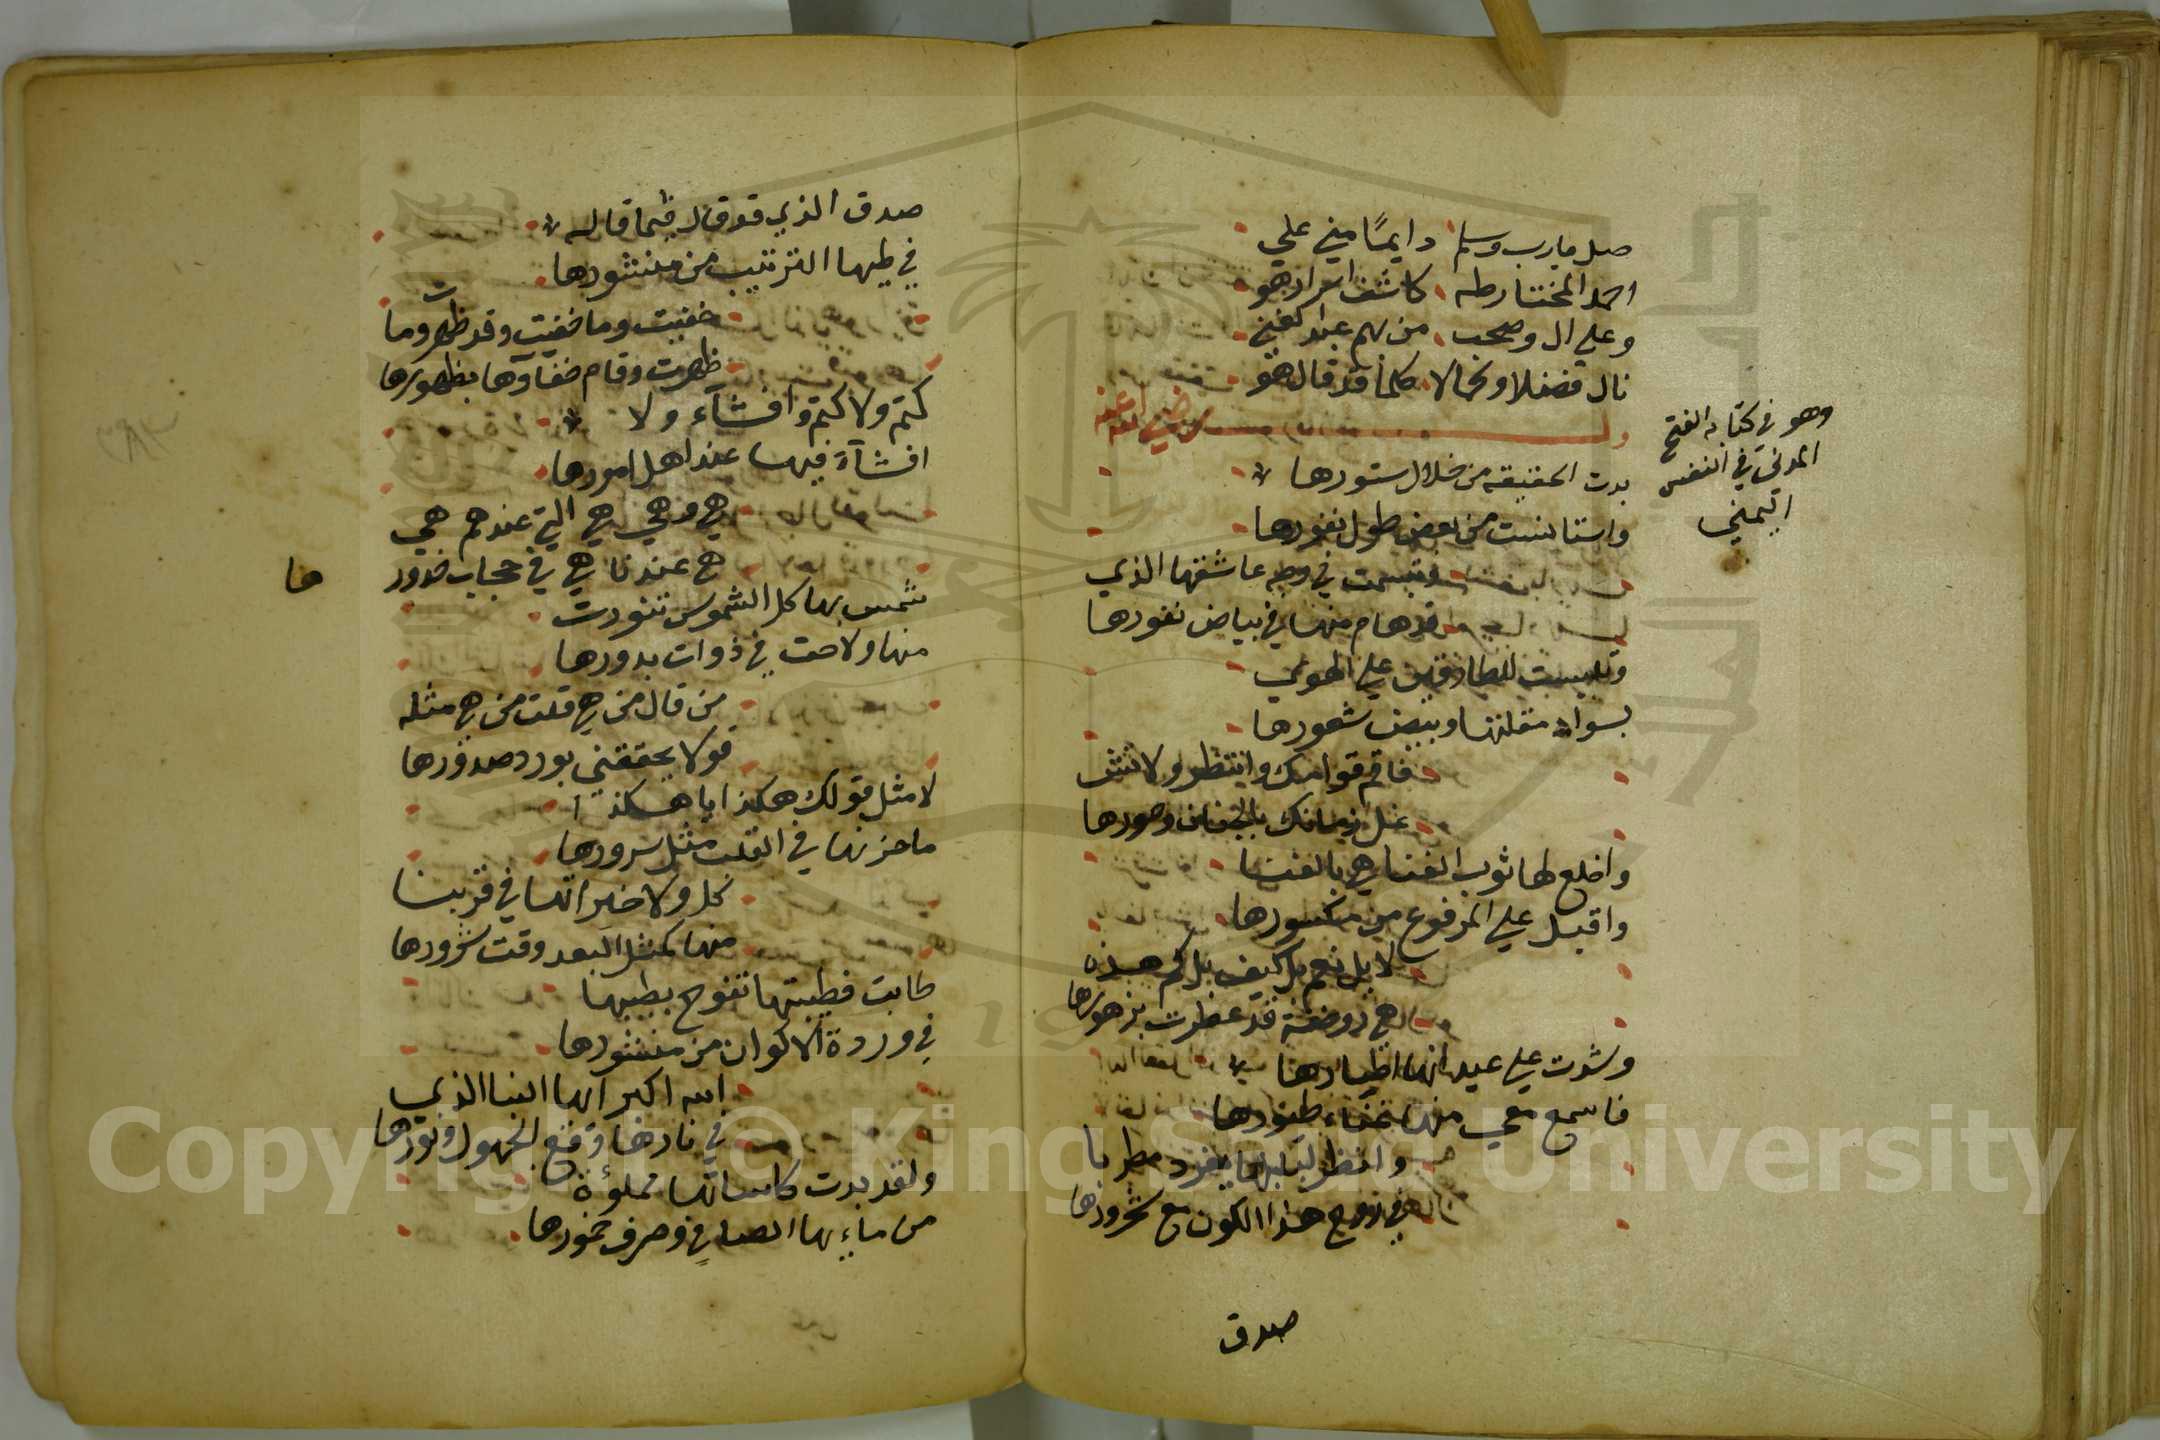 صل يا رب وسلم دايمًا مني علي
احمد المختار طه كاشف اسرار هو
وعلي ال وصحب من بهم عبد الغني
نال فضلا وكمالا كلما قد قال هو
وله رضي الله عنه
وهو في كتابه الفتح
المدني في النفس
اليمني
بدت الحقيقة من خلال ستورها
واستانست من بعض طول نفورها
وتبسمت في وجه عاشقها الذي
قد هام منها في بياض ثغورها
وتلبست للطارقين علي الهوي
بسواد مقلتها وبيض شعورها
فاقم قوامك وانتظر ولا تشـ
ـغل زمانك بالجنان وحورها
واخلع لها ثوب الغنا هي بالغنا
واقبل علي المرفوع من مكسورها
لا بل نعم بل كيف بل كم هذه
هي روضة قد عطرت بزهورها
وشدت علي عيدانها اطيارها
فاسمع معي منها غناء طيورها
وانظر لبلبلها يغرد مطربا
في دوح هذا الكون مع شحرورها
صدق
صدق الذي قد قال فيما قاله
في طيها الترتيب من منشورها
خفيت وما خفيت وقد ظهرت وما
ظهرت وقام خفاوها بظهورها
كتم ولا كتم وافشاء ولا
افشاءَ فيها عند اهل امورها
هي وهي هي التي عندهم هي
هي عندنا هي في حجاب خدور
ها
شمس بها كل الشموس تنورت
منها ولاحت في ذوات بدورها
من قال من هي قلت من هي مثله
قولا يحققني بورد صدورها
لا مثل قولك هكذا يا هكذا
ما حزنها في القلب مثل سرورها
كل ولا خيراتها في قربنا
منها كمثل البعد وقت شرورها
طابت فطيبتها تفوح بطيبها
في وردة الاكوان من منشورها
الله اكبر انها النبا الذي
في نارها وقع الجهول ونورها
ولقد بدت كاساتها مملوءة
من ماءِ بها الصافي وصرف خمورها